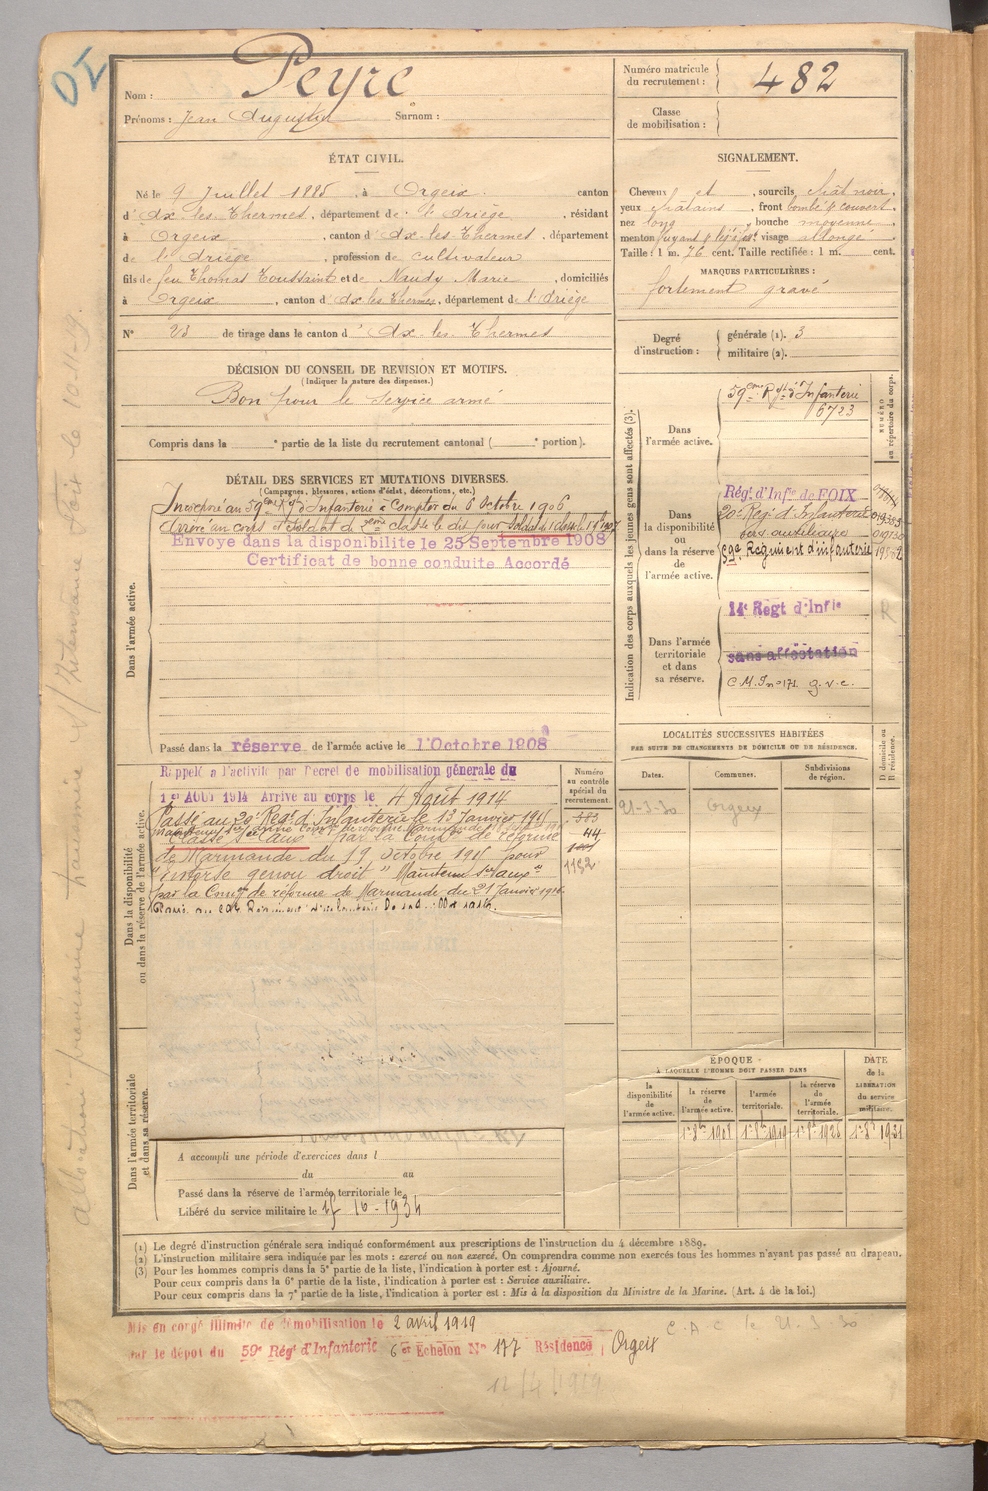 Nom : Peyre
Prénoms : Jean Augustin Surnom :
Numéro matricule du recrutement : 482
Classe de mobilisation :
ÉTAT CIVIL.
Né le 9 Juillet 1885, à Orgeix canton
d'Ax-les-Thermes, département de l'Ariège, résidant
à Orgeix, canton d'Ax-les-Thermes, département
de l'Ariège, profession de cultivateur
fils de feu Thomas Toussaint et de Naudy Marie, domiciliés
à Orgeix, canton d'Ax les Thermes, département de l'Ariège
N° 23 de tirage dans le canton d'Ax-les-Thermes
SIGNALEMENT.
Cheveux et, sourcils chât noir,
yeux châtains, front bombé & couvert,
nez long, bouche moyenne,
menton fuyant & visage allongé
Taille : 1 m. 76 cent. Taille rectifiée : 1 m. cent.
MARQUES PARTICULIÈRES :
fortement gravé
Degré d'instruction : générale (1). 3
militaire (2).
DÉCISION DU CONSEIL DE REVISION ET MOTIFS.
(Indiquer la nature des dispenses.)
Bon pour le service armé
Compris dans la e partie de la liste du recrutement cantonal ( e portion).
DÉTAIL DES SERVICES ET MUTATIONS DIVERSES.
(Campagnes, blessures, actions d'éclat, décorations, etc.)
Dans l'armée active.
Incorporé au 59eme Rgt d'Infanterie à compter du 6 Octobre 1906
Arrivé au corps et soldat de 2eme classe le dit jour
Envoyé dans la disponibilité le 25 Septembre 1908
Certificat de bonne conduite Accordé
Passé dans la réserve de l'armée active le 1 Octobre 1908
Indication des corps auxquels les jeunes gens sont affectés (3).
NUMÉRO au répertoire du corps.
Dans l'armée active.
59eme Rgt d'Infanterie
6723
Dans la disponibilité ou dans la réserve de l'armée active.
Rég. d'Infie de FOIX
20e Reg. d'Infanterie
sers auxiliaire
59e Régiment d'infanterie
Dans l'armée territoriale et dans sa réserve.
14e Regt d'Infie
sans affectation
C.M. In° 171. g.v.c.
R
Dans la disponibilité ou dans la réserve de l'armée active.
Rappelé à l'activité par Décret de mobilisation générale du
1er AOUT 1914 Arrivé au corps le 4 Août 1914
Passé au 20e Regt d'Infanterie le 13 Janvier 1915
Classé s. aux par la Comon de réforme
de Marmande du 19 Octobre 1915 pour
"entorse genou droit" Maintenu s. aux
par la Comon de réforme de Marmande du 21 Janvier 1916
Numéro au contrôle spécial du recrutement.
44
1132
LOCALITÉS SUCCESSIVES HABITÉES
PAR SUITE DE CHANGEMENTS DE DOMICILE OU DE RÉSIDENCE.
Dates. Communes. Subdivisions de région. D domicile ou R résidence.
21-3-30 Orgeix
ÉPOQUE
À LAQUELLE L'HOMME DOIT PASSER DANS
la disponibilité de l'armée active.
la réserve de l'armée active.
l'armée territoriale.
la réserve de l'armée territoriale.
DATE de la LIBÉRATION du service militaire.
1er 8bre 1908
Dans l'armée territoriale et dans sa réserve.
A accompli une période d'exercices dans l
du au
Passé dans la réserve de l'armée territoriale le
Libéré du service militaire le 15-10-1934
(1) Le degré d'instruction générale sera indiqué conformément aux prescriptions de l'instruction du 4 décembre 1889.
(2) L'instruction militaire sera indiquée par les mots : exercé ou non exercé. On comprendra comme non exercés tous les hommes n'ayant pas passé au drapeau.
(3) Pour les hommes compris dans la 5e partie de la liste, l'indication à porter est : Ajourné.
Pour ceux compris dans la 6e partie de la liste, l'indication à porter est : Service auxiliaire.
Pour ceux compris dans la 7e partie de la liste, l'indication à porter est : Mis à la disposition du Ministre de la Marine. (Art. 4 de la loi.)
Mis en congé illimité de démobilisation le 2 avril 1919
par le dépôt du 59e Régt d'Infanterie 6e Echelon N° 177 Résidence Orgeix
C.A.C le 21-3-30
12/4/1919